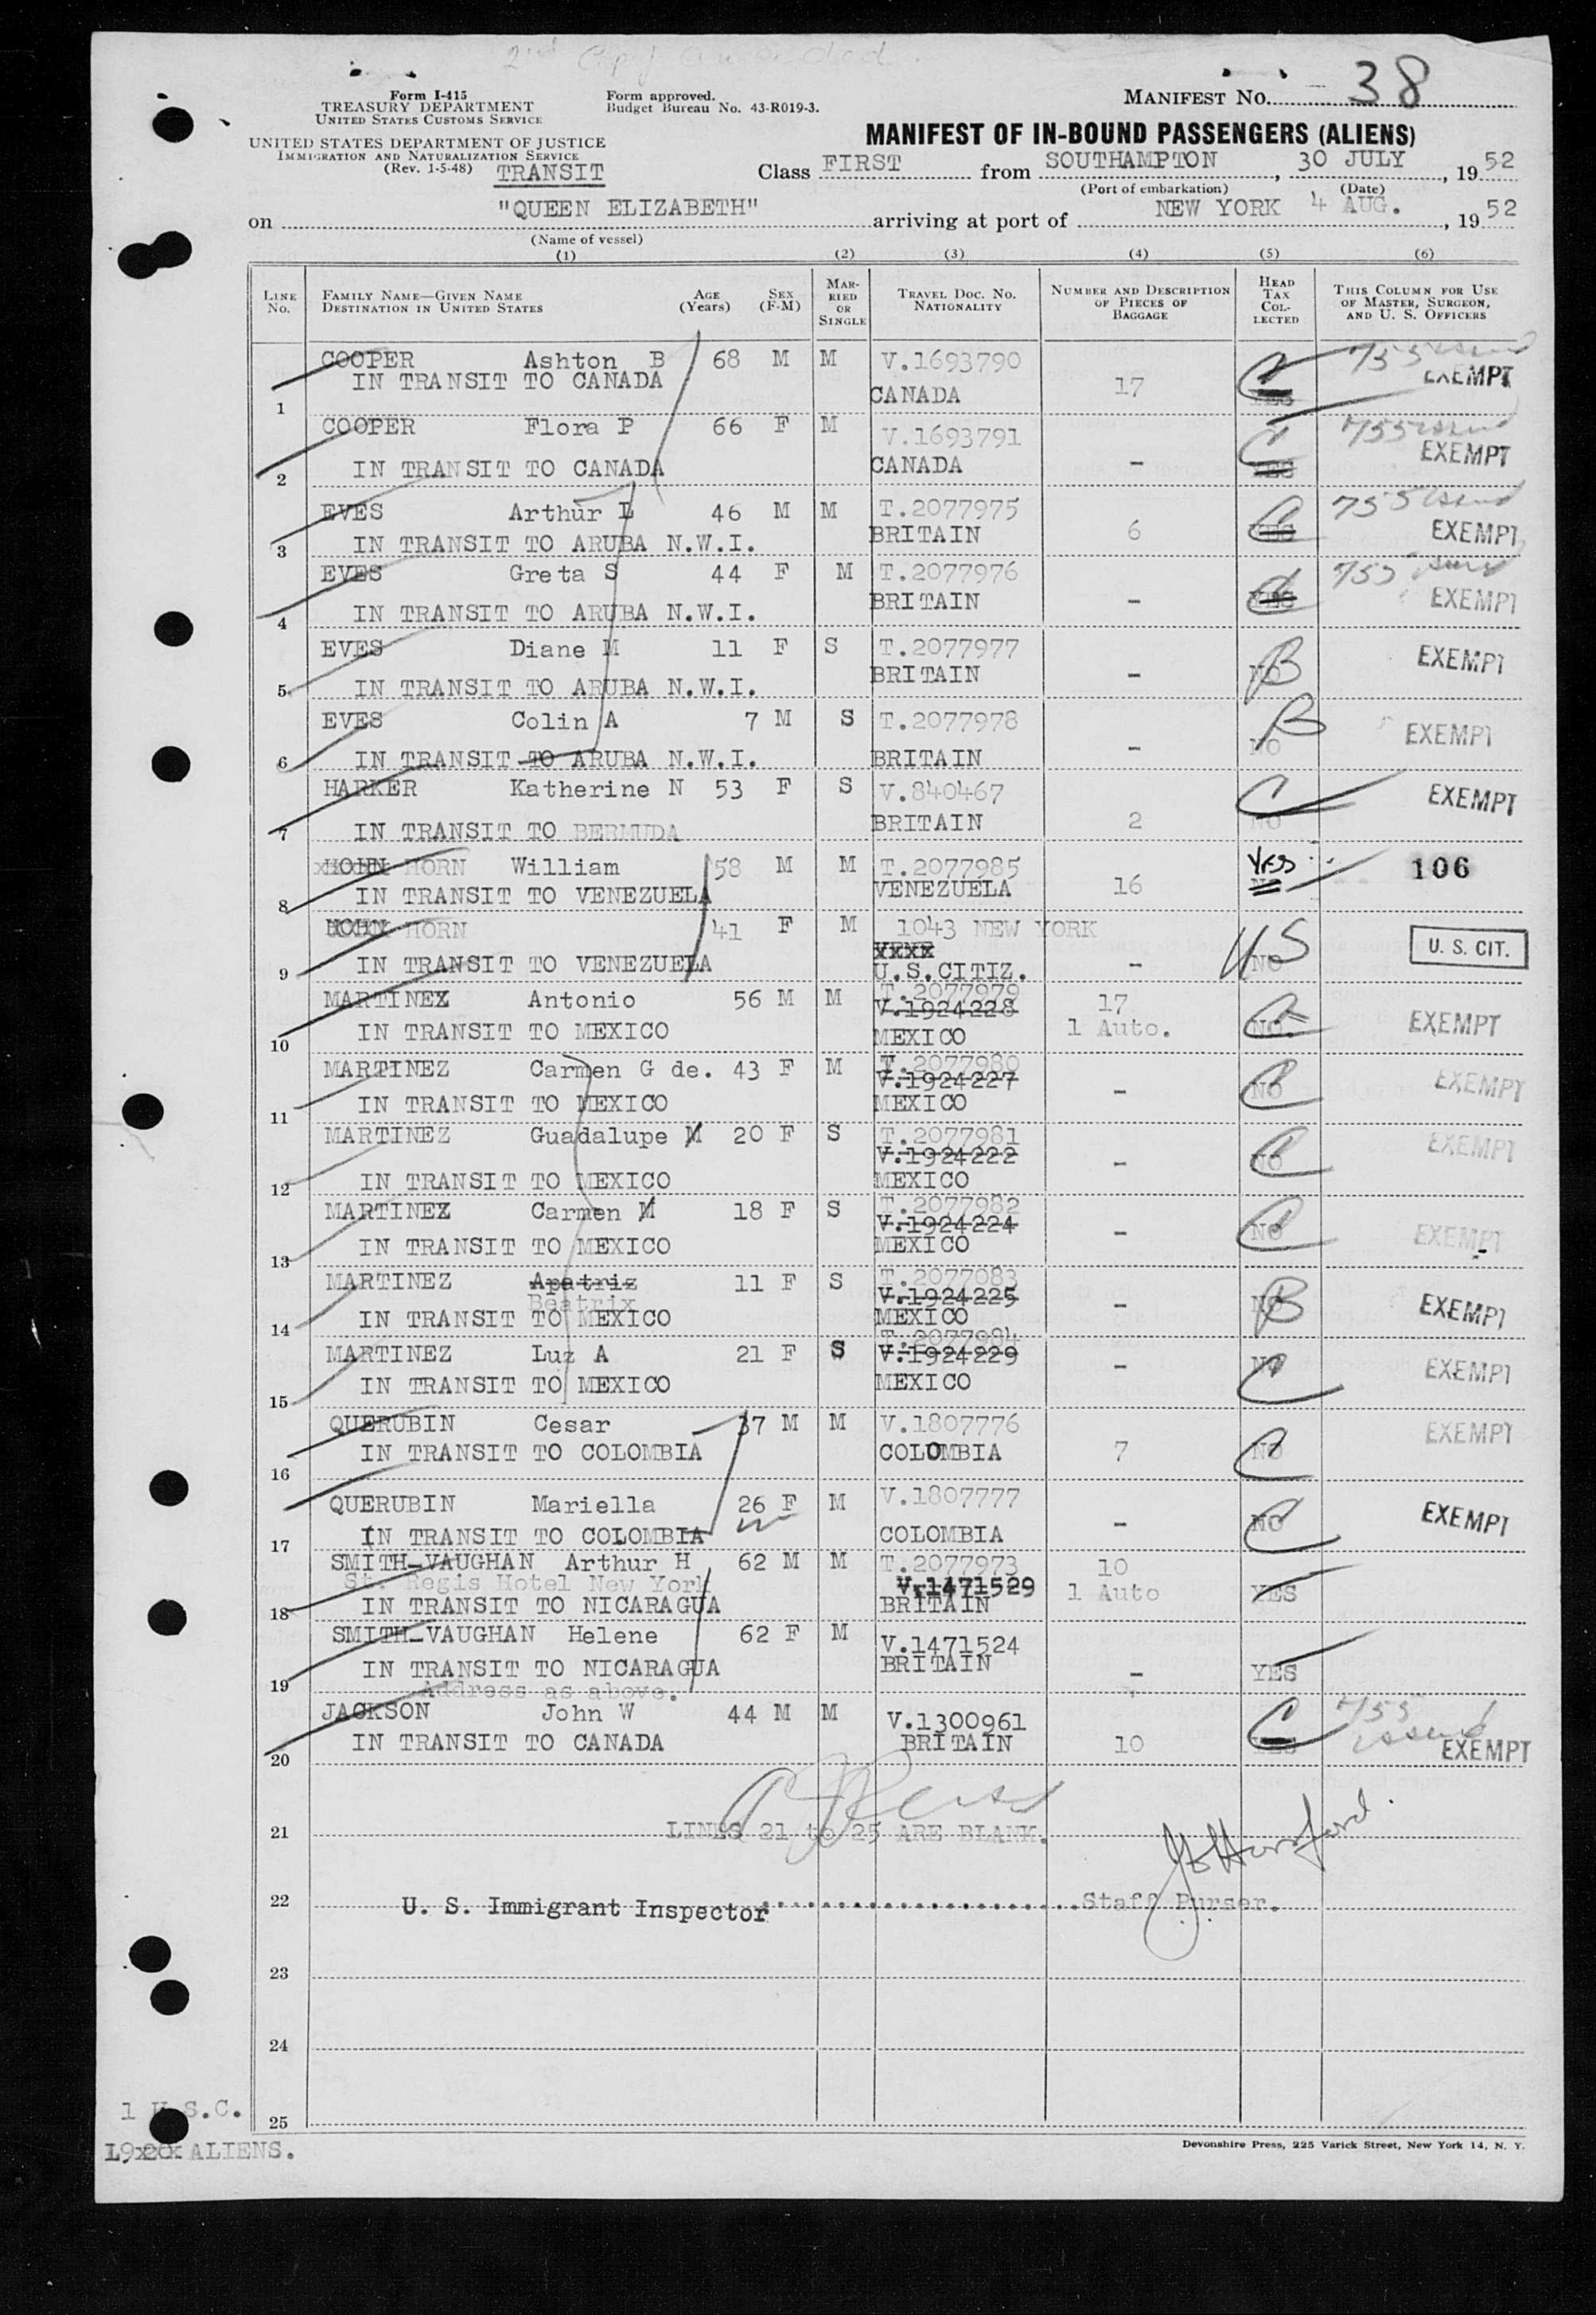 2nd Copy amended.
Form I-415
TREASURY DEPARTMENT
UNITED STATES CUSTOMS SERVICE
Form approved.
Budget Bureau No. 43-R019-3.
MANIFEST NO. 38
UNITED STATES DEPARTMENT OF JUSTICE
IMMIGRATION AND NATURALIZATION SERVICE
(Rev. 1-5-48) TRANSIT
MANIFEST OF IN-BOUND PASSENGERS (ALIENS)
Class FIRST from SOUTHAMPTON, 30 JULY, 1952
(Port of embarkation) (Date)
on "QUEEN ELIZABETH" arriving at port of NEW YORK 4 AUG., 1952
(Name of vessel)
(1) (2) (3) (4) (5) (6)
LINE NO. FAMILY NAME—GIVEN NAME DESTINATION IN UNITED STATES AGE (Years) SEX (F-M) MARRIED OR SINGLE TRAVEL DOC. NO. NATIONALITY NUMBER AND DESCRIPTION OF PIECES OF BAGGAGE HEAD TAX COLLECTED THIS COLUMN FOR USE OF MASTER, SURGEON, AND U. S. OFFICERS
COOPER Ashton B 68 M M V.1693790 755
1 IN TRANSIT TO CANADA CANADA 17 YES EXEMPT
COOPER Flora P 66 F M V.1693791 755
2 IN TRANSIT TO CANADA CANADA - YES EXEMPT
EVES Arthur L 46 M M T.2077975 755
3 IN TRANSIT TO ARUBA N.W.I. BRITAIN 6 YES EXEMPT
EVES Greta S 44 F M T.2077976 755
4 IN TRANSIT TO ARUBA N.W.I. BRITAIN - YES EXEMPT
EVES Diane M 11 F S T.2077977 EXEMPT
5 IN TRANSIT TO ARUBA N.W.I. BRITAIN - NO B
EVES Colin A 7 M S T.2077978 EXEMPT
6 IN TRANSIT TO ARUBA N.W.I. BRITAIN - NO B
HARKER Katherine N 53 F S V.840467 C EXEMPT
7 IN TRANSIT TO BERMUDA BRITAIN 2 NO
HOHN HORN William 58 M M T.2077985 YES 106
8 IN TRANSIT TO VENEZUELA VENEZUELA 16 NO
HOHN HORN 41 F M 1043 NEW YORK
9 IN TRANSIT TO VENEZUELA U.S.CITIZ. - NO US U. S. CIT.
MARTINEZ Antonio 56 M M T.2077979 17
V.1924228
10 IN TRANSIT TO MEXICO MEXICO 1 Auto. NO. C EXEMPT
MARTINEZ Carmen G de. 43 F M T.2077980
V.1924227
11 IN TRANSIT TO MEXICO MEXICO - NO C EXEMPT
MARTINEZ Guadalupe M 20 F S T.2077981
V.1924222
12 IN TRANSIT TO MEXICO MEXICO - NO C EXEMPT
MARTINEZ Carmen M 18 F S T.2077982
V.1924224
13 IN TRANSIT TO MEXICO MEXICO - NO C EXEMPT
MARTINEZ Apatriz 11 F S T.2077083
Beatrix V.1924225
14 IN TRANSIT TO MEXICO MEXICO - NO B EXEMPT
MARTINEZ Luz A 21 F S T.2077984
V.1924229
15 IN TRANSIT TO MEXICO MEXICO - NO C EXEMPT
QUERUBIN Cesar 37 M M V.1807776 EXEMPT
16 IN TRANSIT TO COLOMBIA COLOMBIA 7 NO C
QUERUBIN Mariella 26 F M V.1807777
17 IN TRANSIT TO COLOMBIA COLOMBIA - NO C EXEMPT
SMITH-VAUGHAN Arthur H 62 M M T.2077973 10
St. Regis Hotel New York V.1471529 1 Auto YES
18 IN TRANSIT TO NICARAGUA BRITAIN
SMITH-VAUGHAN Helene 62 F M V.1471524
19 IN TRANSIT TO NICARAGUA BRITAIN - YES
Address as above.
JACKSON John W 44 M M V.1300961 C 755
20 IN TRANSIT TO CANADA BRITAIN 10 YES EXEMPT
21 LINES 21 to 25 ARE BLANK.
22 U. S. Immigrant Inspector Staff Purser.
23
24
25
1 U.S.C.
19 ALIENS.
Devonshire Press, 225 Varick Street, New York 14, N. Y.